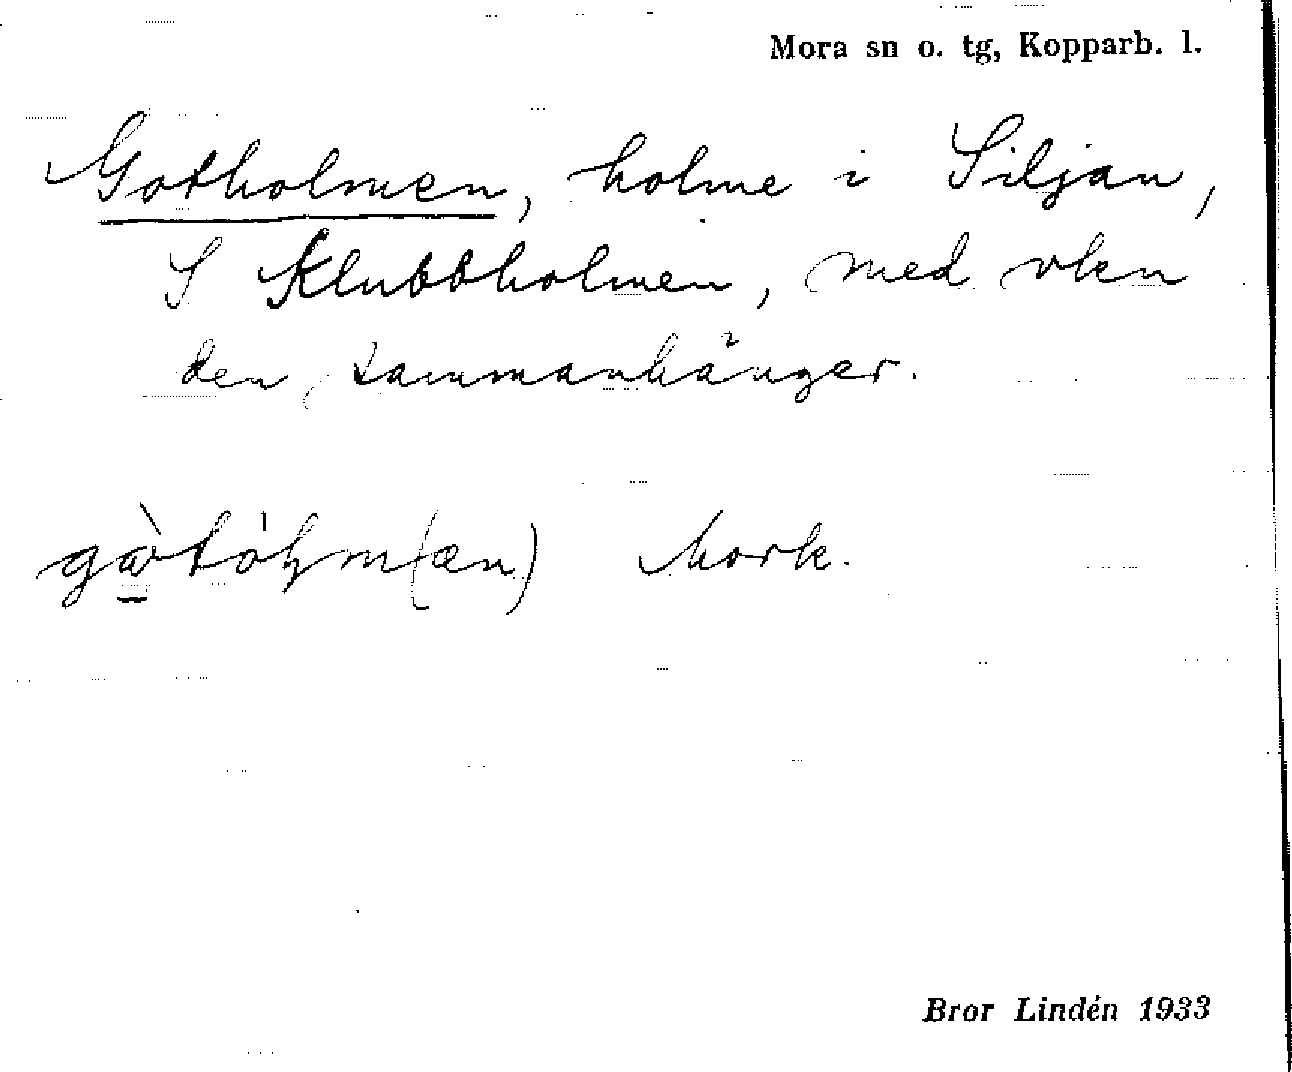 Mora sn o. tg, Kopparb. l.
Gotholmen, holme i Siljan,
S Klubbholmen, med vlen
den sammanhänger.
Mork.
Bror Lindén 1933